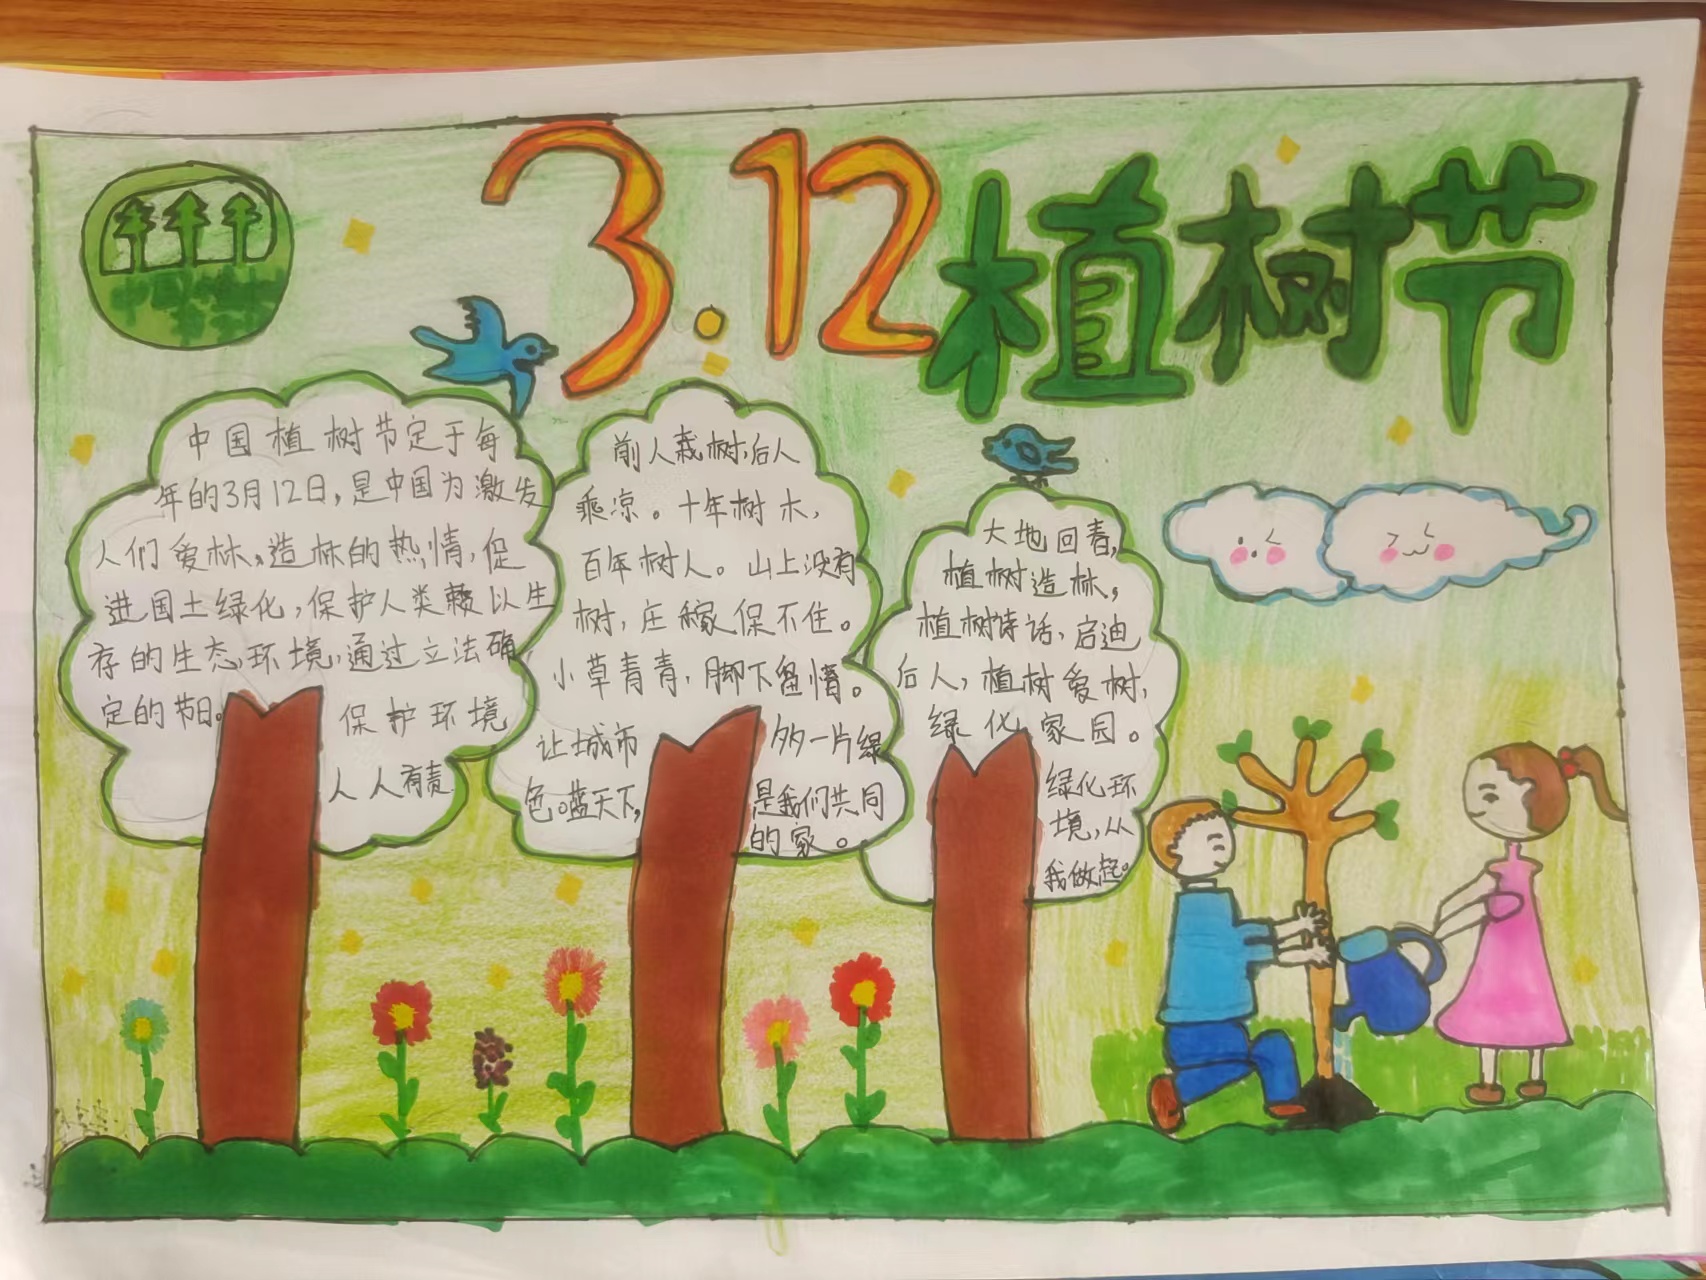 3.12植树节
中国植树节定于每
年的3月12日，是中国为激发
人们爱林、造林的热情，促
进国土绿化，保护人类赖以生
存的生态环境，通过立法确
定的节日。
保护环境
人人有责
前人栽树，后人
乘凉。十年树木，
百年树人。山上没有
树，庄稼保不住。
小草青青，脚下留情。
让城市 多一片绿
色。蓝天下，是我们共同
的家。
大地回春，
植树造林，
植树诗话，启迪
后人，植树爱树，
绿化家园。
绿化环
境，从
我做起。